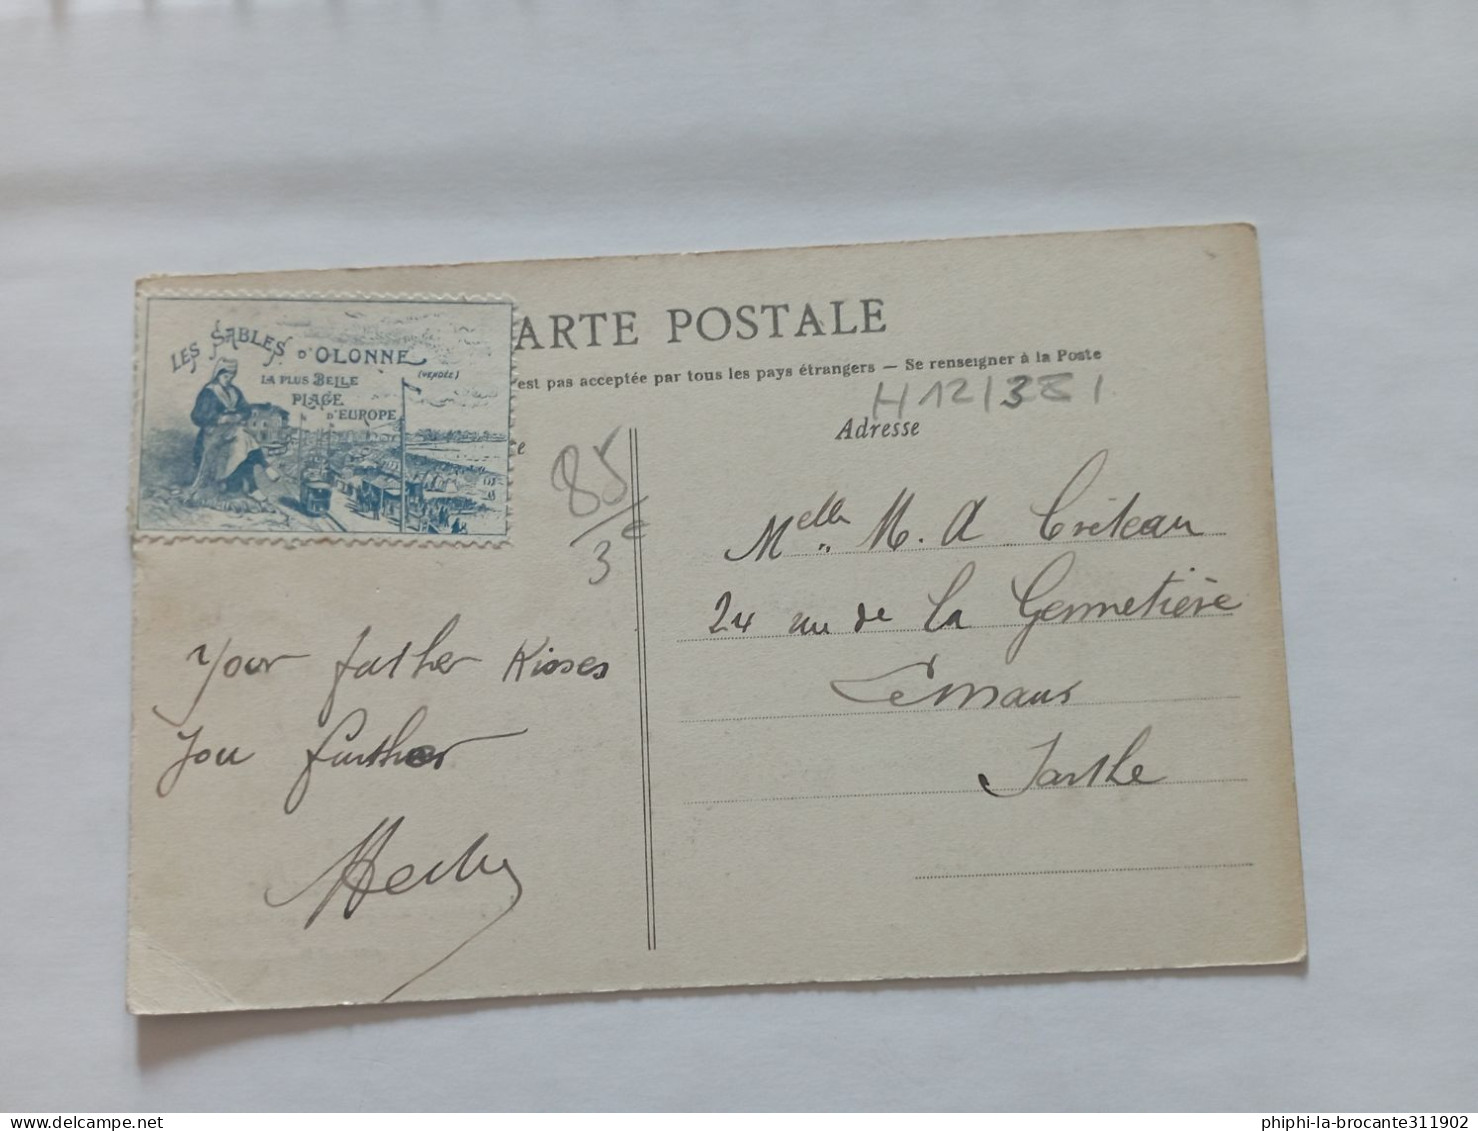 LES SABLES D'OLONNE
(VENDÉE)
LA PLUS BELLE
PLAGE
D'EUROPE
ARTE POSTALE
est pas acceptée par tous les pays étrangers — Se renseigner à la Poste
H12/381
Adresse
85
3€
Melle M. A Criteau
24 rue de la Germetière
Le Mans
Sarthe
Your father Kisses
You further
delcampe.net
phiphi-la-brocante311902